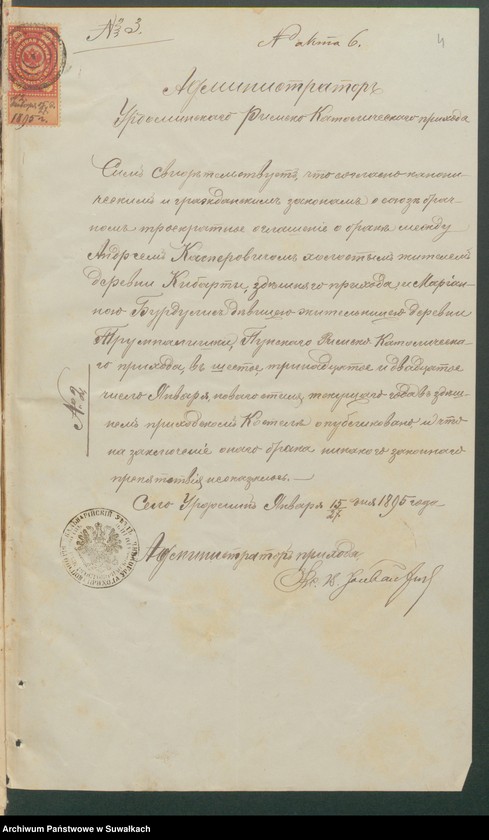 № 3.
N акта 6.
4
Администраторъ
Урдоминскаго Римско Католическаго прихода
1895 г.
Симъ свидѣтельствуетъ, что согласно канони-
ческимъ и гражданскимъ законамъ о союзѣ брач-
номъ троекратное оглашеніе о бракѣ между
Андреемъ Касперовичемъ холостымъ жителемъ
деревни Кибарты, здѣшняго прихода, и Маріан-
ною Бурдулисъ дѣвицею жительницею деревни
Трумпалишки, Пунскаго Римско Католическа-
го прихода, въ шестое, тринадцатое и двадцатое
число Января, новаго стиля, текущаго года въ здѣш-
немъ приходскомъ Костелѣ опубликовано и что
на заключеніе онаго брака никакого законнаго
препятствія неоказалось. —
Село Урдоминъ Января 15/27 дня 1895 года
Администраторъ прихода
Кс.
Archiwum Państwowe w Suwałkach